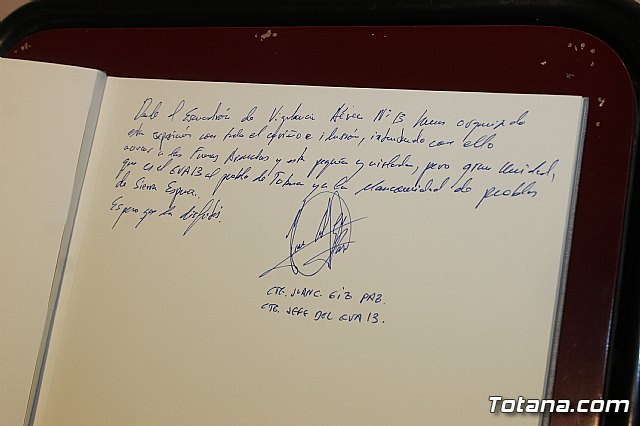 Desde el Escuadrón de Vigilancia Aérea Nº13 hemos organizado
esta exposición con todo el cariño e ilusión, intentando con ello
acercar a las Fuerzas Armadas y esta pequeña y aislada, pero gran Unidad,
que es el EVA13 al pueblo de Totana y a la Mancomunidad de pueblos
de Sierra Espuña.
Espero que la disfrutéis.
CTE. JUAN C.
CTE. JEFE DEL EVA 13.
Totana.com